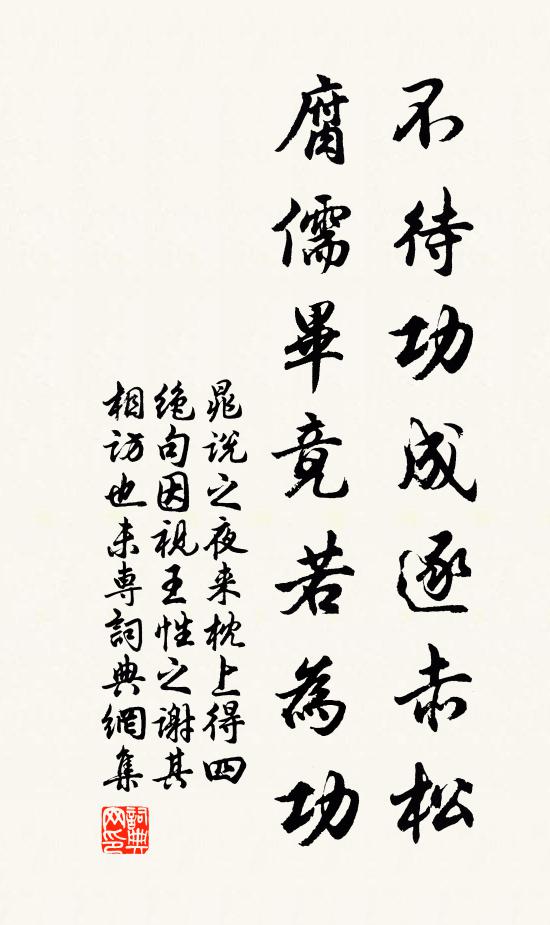 不待功成逐赤松
腐儒畢竟若為功
晁說之夜来枕上得四
絶句因視王性之謝其
相訪也未専詞典網集
詞典网印